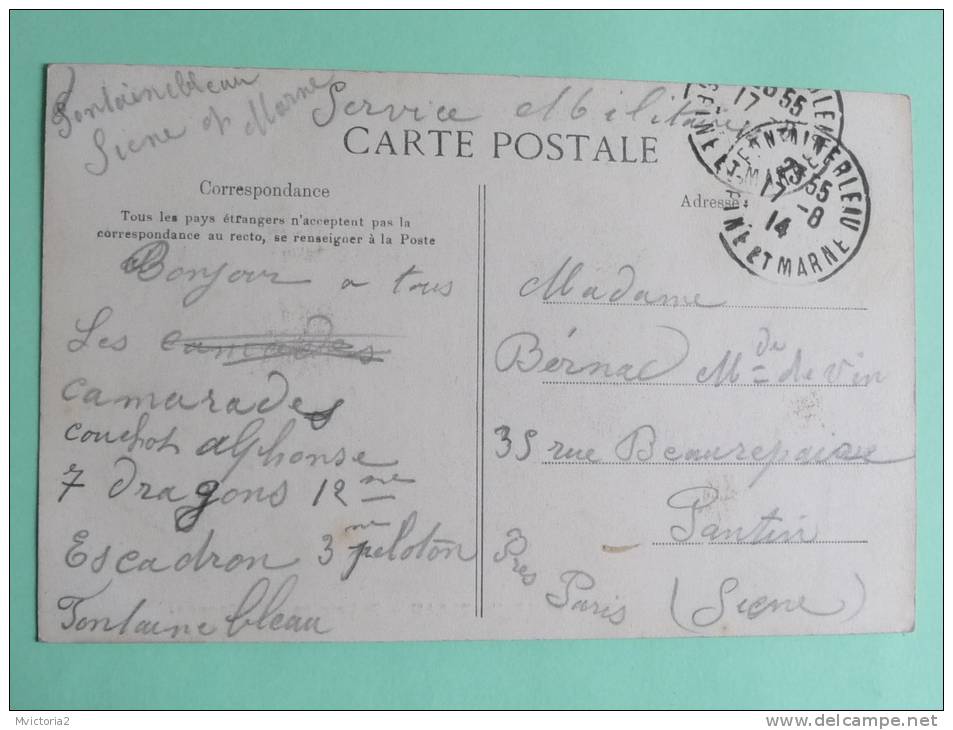 Fontainebleau
Siene et Marne
Service Militaire
CARTE POSTALE
Correspondance
Tous les pays étrangers n'acceptent pas la
correspondance au recto, se renseigner à la Poste
Bonjour a tous
Les camarades
camarades
couchot alphonse
7 dragons 12me
Escadron 3me peloton
Fontainebleau
Adresse:
Madame
Bérnac Mde de vin
35 rue Beaurepaire
Pantin
Pres Paris (Siene)
23 55
17 -8
14
SEINE ET MARNE
Mvictoria2
delcampe.net